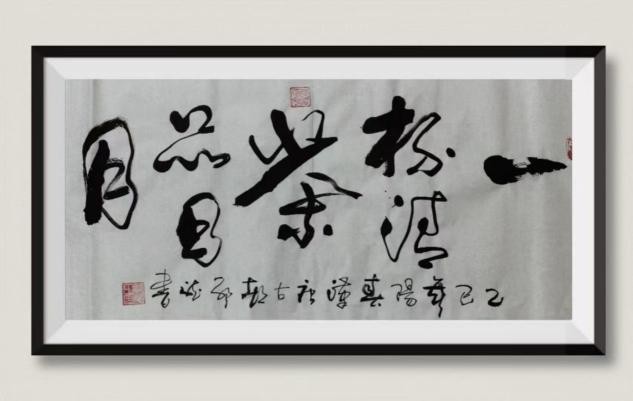 一
杯清
茶
品日
月
乙巳年陽春漢古都書